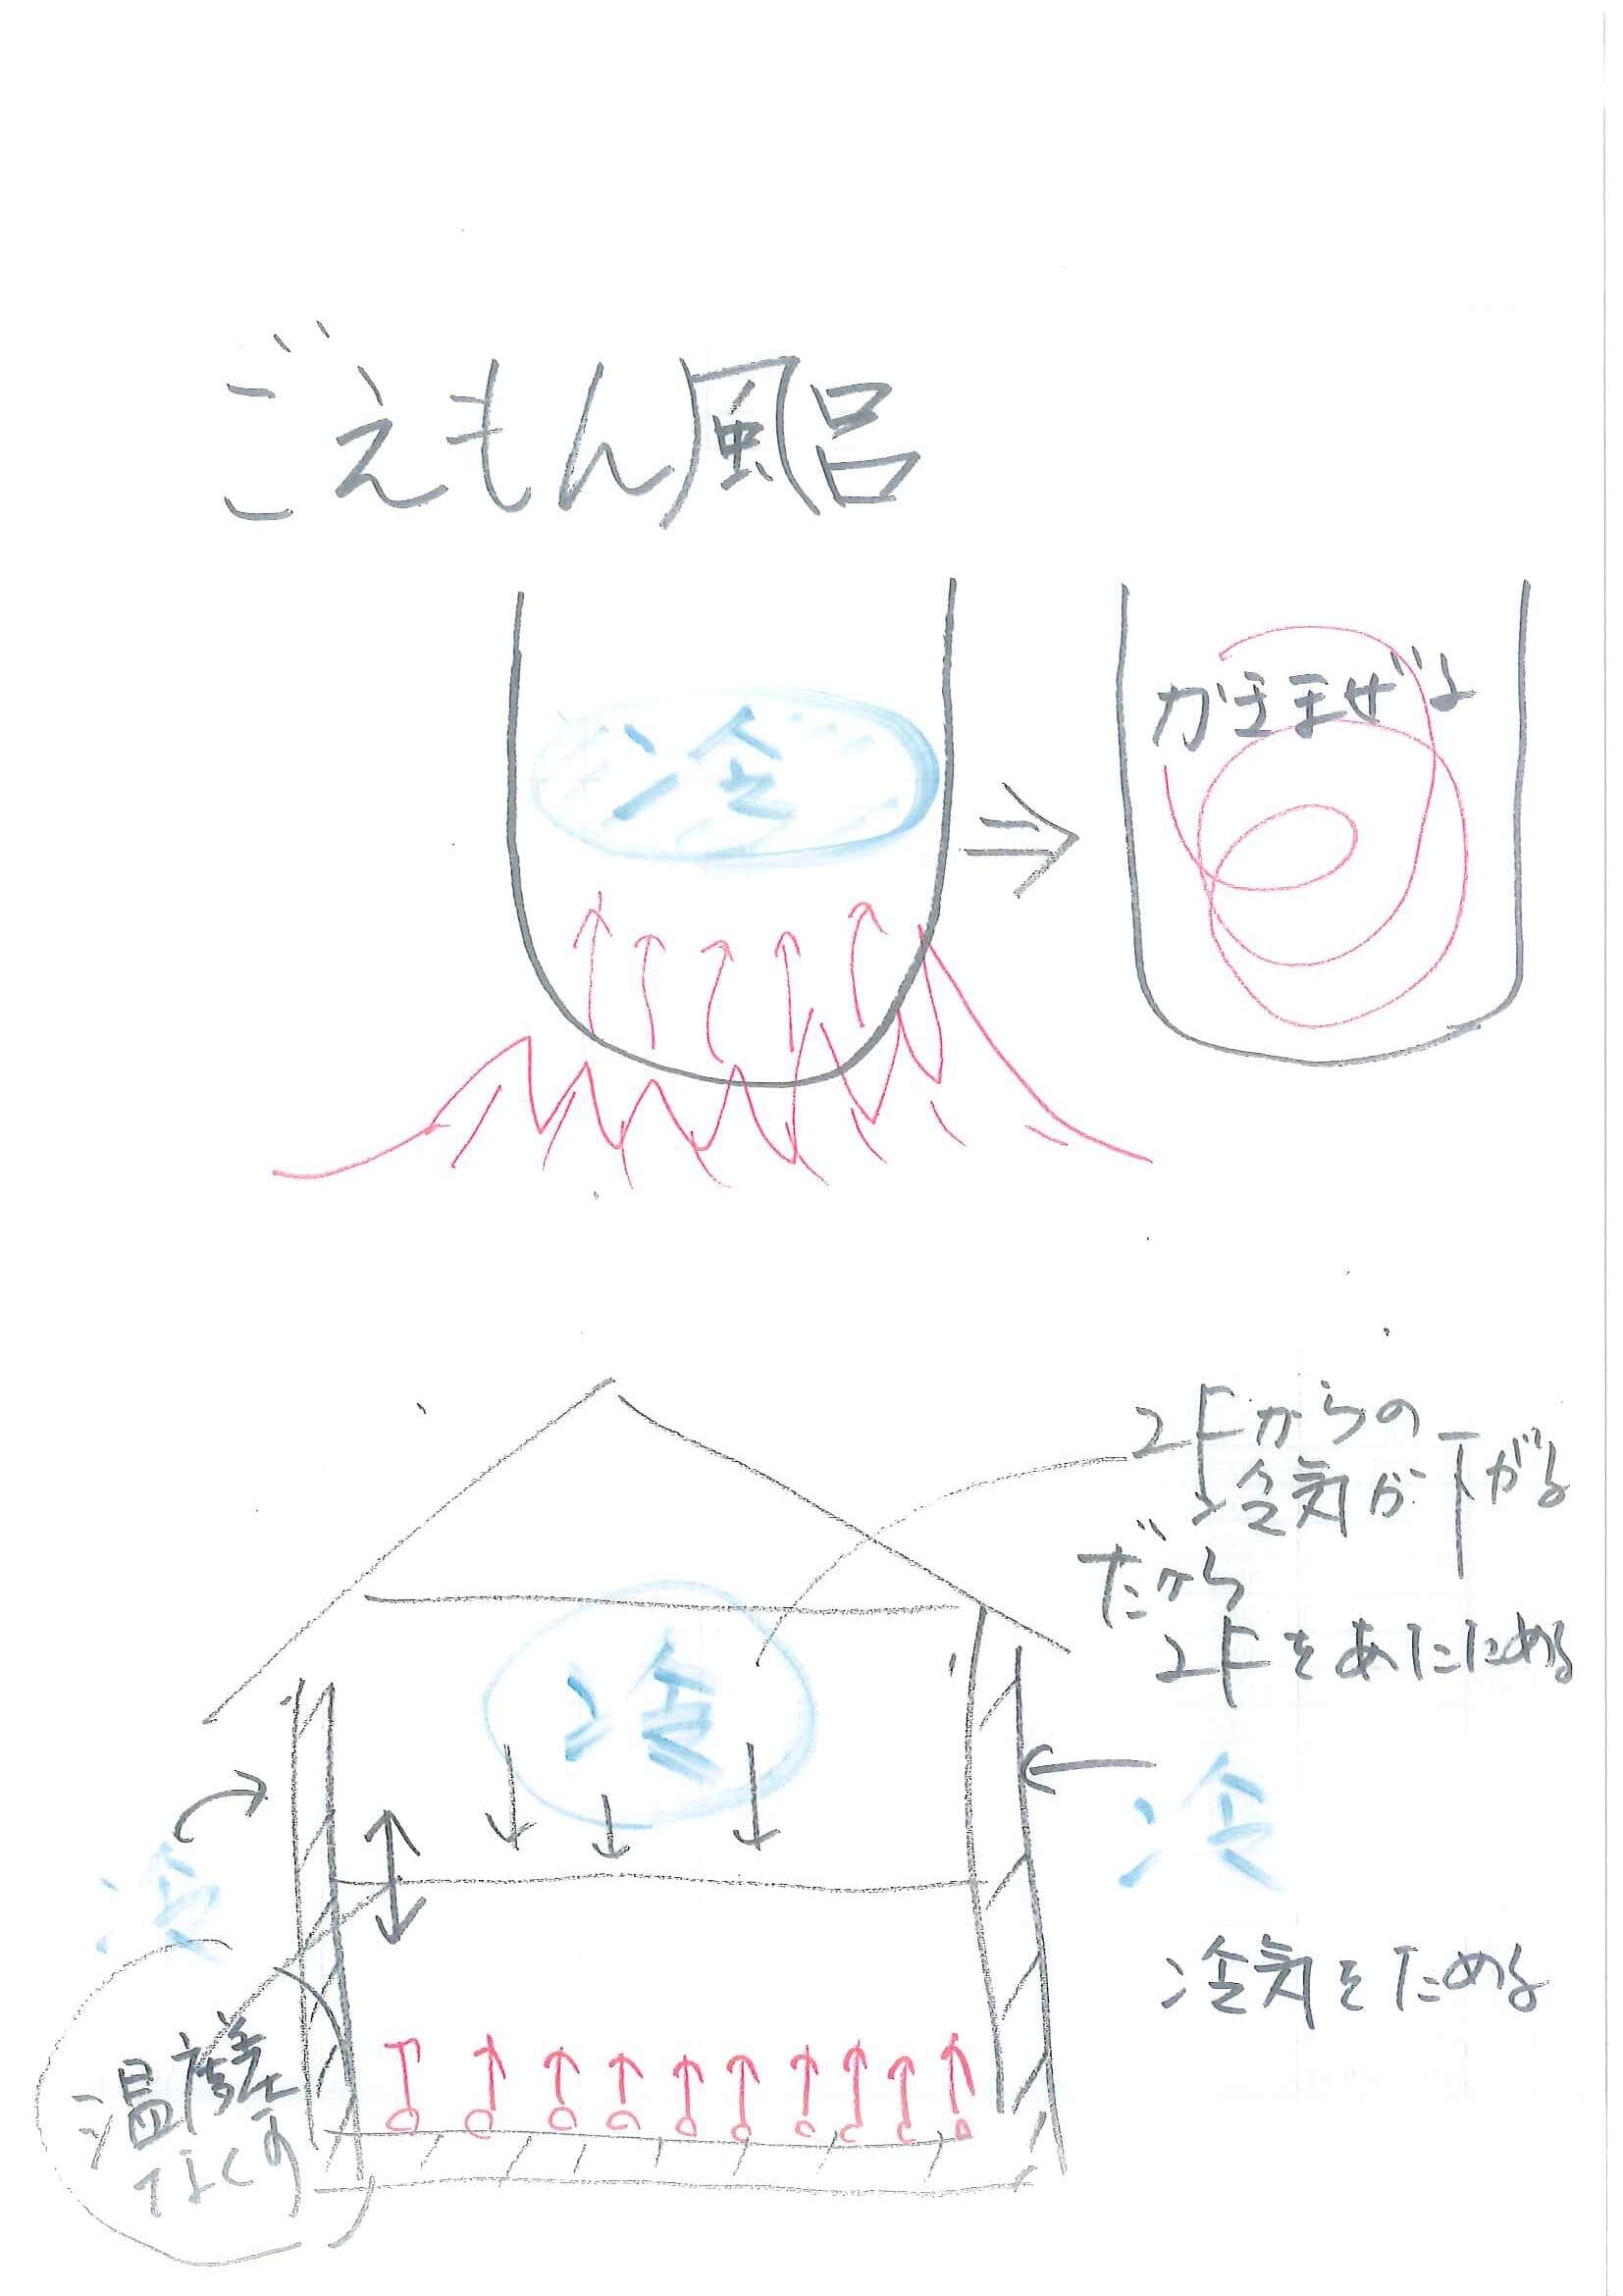 ごえもん風呂
冷
かきまぜよ
2Fからの
冷気が下がる
だから
2Fをあたためる
冷
冷
冷
冷気をためる
温度差
なくす